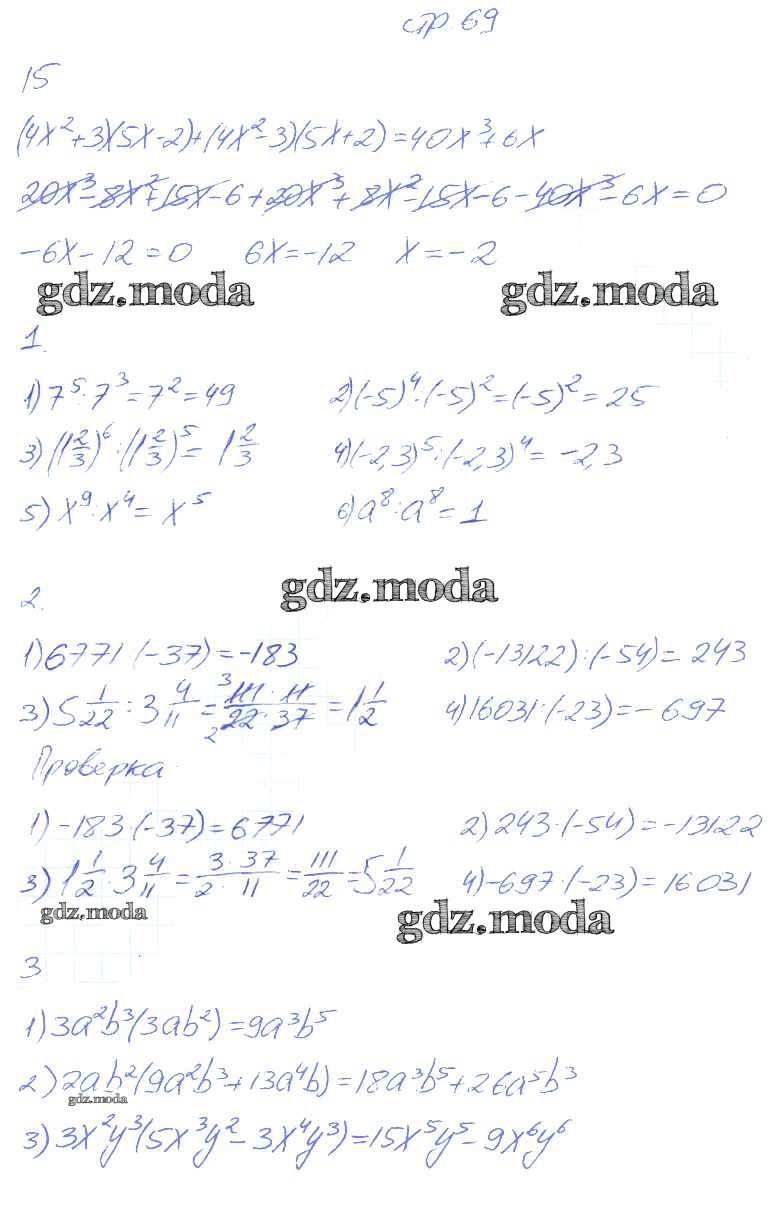 стр 69
15
(4x²+3)(5x-2)+(4x²-3)(5x+2)=40x³+6x
20x³-8x²+15x-6+20x³+8x²-15x-6-40x³-6x=0
-6x-12=0 6x=-12 x=-2
gdz.moda gdz.moda
1.
1) 7⁵:7³=7²=49 2) (-5)⁴:(-5)²=(-5)²=25
3) (1 2/3)⁶:(1 2/3)⁵=1 2/3 4) (-2,3)⁵:(-2,3)⁴=-2,3
5) x⁹:x⁴=x⁵ 6) a⁸:a⁸=1
gdz.moda
2.
1) 6771 (-37)=-183 2) (-13122):(-54)=243
3) 5 1/22 : 3 4/11 = 3 111·11/22·37 2 = 1 1/2 4) 16031:(-23)=-697
Проверка
1) -183·(-37)=6771 2) 243·(-54)=-13122
3) 1 1/2·3 4/11=3·37/2·11=111/22=5 1/22 4) -697·(-23)=16031
gdz.moda gdz.moda
3
1) 3a²b³(3ab²)=9a³b⁵
2) 2ab²(9a²b³+13a⁴b)=18a³b⁵+26a⁵b³
gdz.moda
3) 3x²y³(5x³y²-3x⁴y³)=15x⁵y⁵-9x⁶y⁶